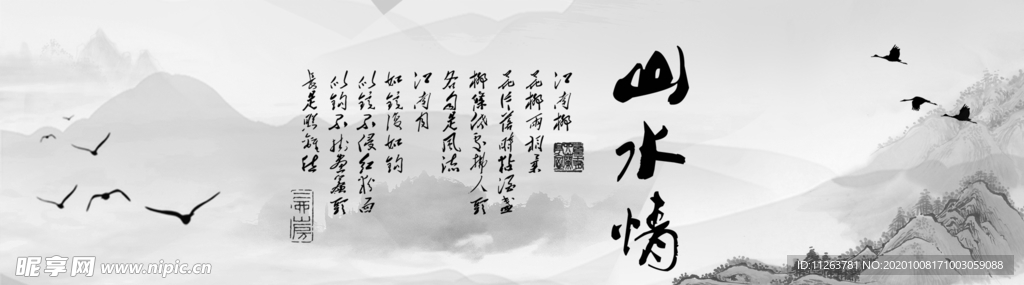 山水情
江南柳
花柳兩相柔
花片落時黏酒盞
柳條低處拂人頭
各自是風流
江南月
如鏡復如鉤
似鏡不侵紅粉面
似鉤不掛畫簾頭
長是照離愁
昵享网 www.nipic.cn
ID:11263781 NO:20201008171003059088